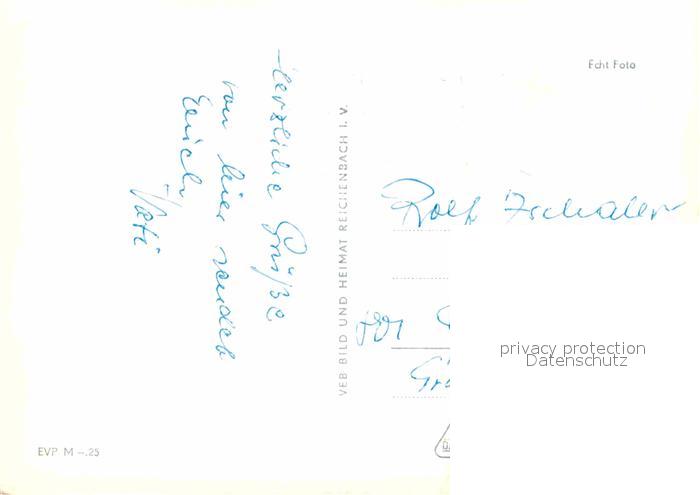 Herzliche Grüße
von hier sendet
Euch
Vati
VEB BILD UND HEIMAT REICHENBACH I. V.
Echt Foto
Rolf
privacy protection
Datenschutz
EVP M -.25